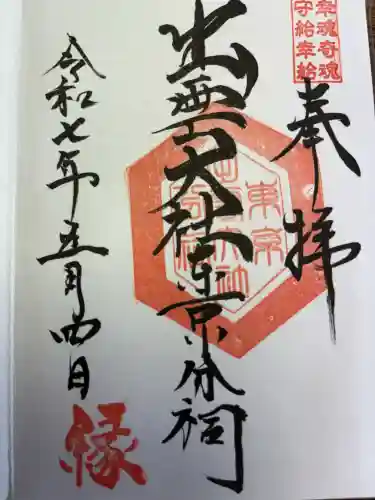 幸魂奇魂
守給幸給
奉拝
出雲大社東京分祠
令和七年五月四日
縁